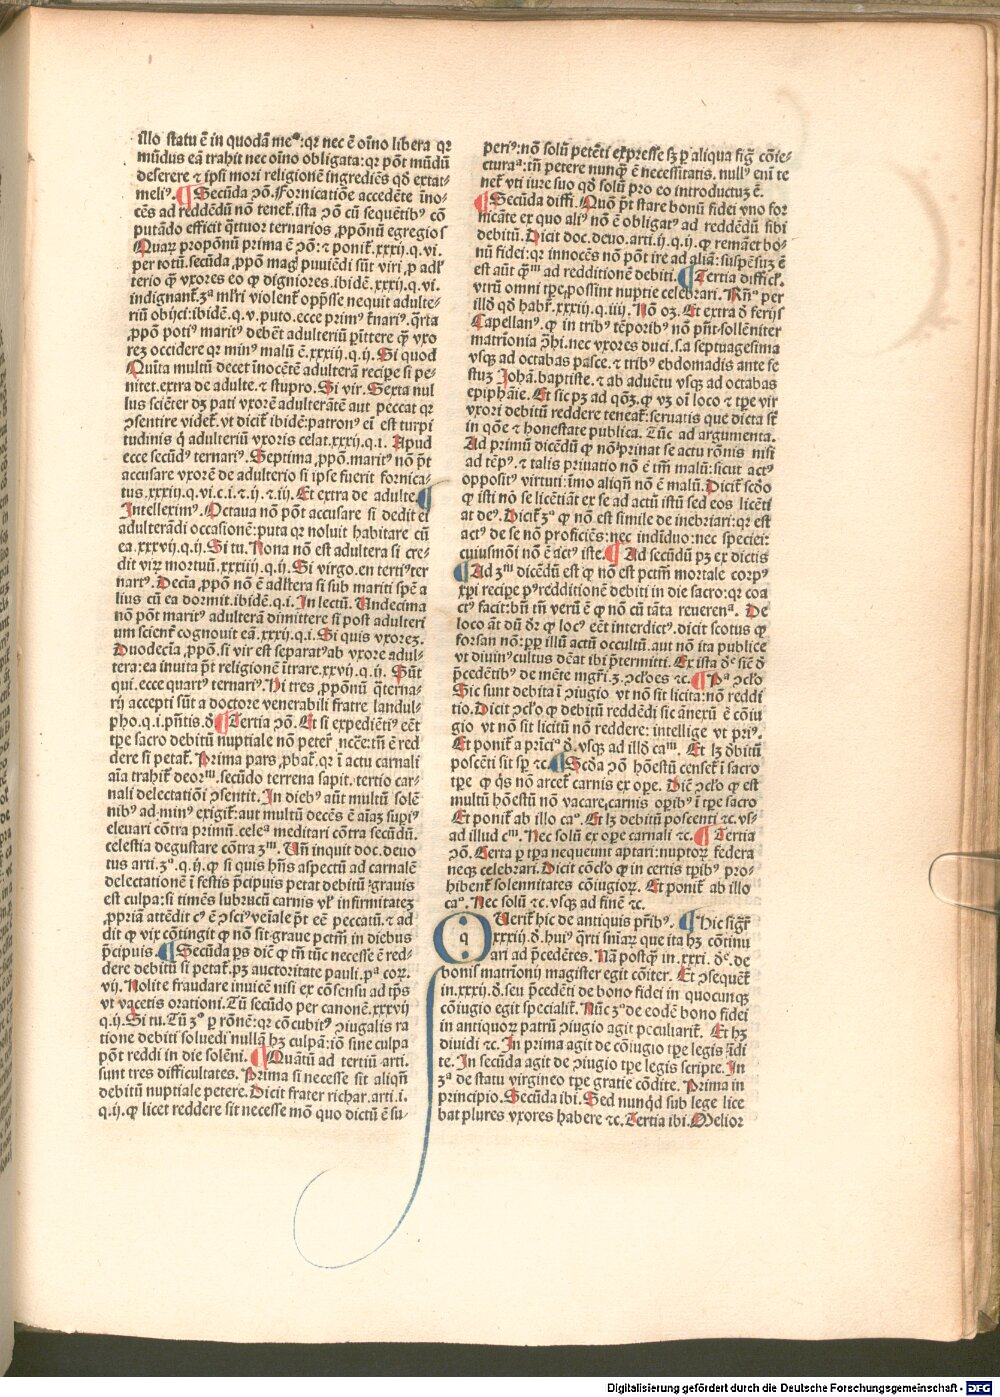 illo statu ē in quodā meᵒ: qꝛ nec ē oīno libera qꝛ
mūdus eā trahit nec oīno obligata: qꝛ pōt mūdū
deserere ⁊ ipsi mori religionē ingrediēs qd̄ extat
meliꝰ. ¶ Secūda ꝯō. Fornicatiōe accedēte īno-
cēs ad reddēdū nō tenet̄. ista ꝯō cū sequētibꝰ cō
putādo efficit q̄tuor ternarios ꝓpōnū egregios
Quaꝝ propōnū prima ē ꝯō: ⁊ ponit̄. xxxij. q. vi.
per totū. secūda ꝓpō magꝭ puniēdi sūt viri ꝓ adl̓
terio q̄ vxores eo ꝙ digniores. ibidē. xxxij. q. vi.
indignant̄. 3ᵃ mlr̄i violent̄ opp̄sse nequit adulte-
riū obijci: ibidē. q. v. puto. ecce primꝰ t̄narꝰ. q̄rta
ꝓpō potiꝰ maritꝰ debet adulteriū p̄mittere q̄ vxo
reꝫ occidere qꝛ minꝰ malū ē. xxxiij. q. ij. Si quod
Quīta multū decet īnocētē adulterā recipe si pe-
nitet. extra de adulte. ⁊ stupro. Si vir. Sexta nul
lus sciēter dꝫ pati vxorē adulterātē aut peccat qꝛ
ꝯsentire videt̄. vt dicit̄ ibidē: patronꝰ eī est turpi
tudinis q̄ adulteriū vxoris celat. xxxij. q. i. Apud
ecce secūdꝰ ternarꝰ. Septima ꝓpō. maritꝰ nō p̄t
accusare vxorē de adulterio si ipse fuerit fornica-
tus. xxxiij. q. vi. c. i. ⁊ ij. ⁊ iij. Et extra de adulte. ¶
Intelleximꝰ. Octaua nō pōt accusare si dedit ei
adulterādi occasionē: puta qꝛ noluit habitare cū
ea. xxxvij. q. ij. Si tu. Nona nō est adultera si cre-
dit virꝫ mortuū. xxxiiij. q. ij. Si virgo. en tertiꝰ ter
narꝰ. Decīa ꝓpō nō ē adl̓tera si sub mariti sp̄e a
lius cū ea dormit. ibidē. q. i. In lectū. Undecima
nō pōt maritꝰ adulterā dimittere si post adulteri
um scient̄ cognouit eā. xxxij. q. i. Si quis vxoreꝫ.
Duodecīa ꝓpō. si vir est separatꝰ ab vxore adul-
tera: ea inuita p̄t religionē ītrare. xxvij. q. ij. Sūt
qui. ecce quartꝰ ternariꝰ. Hi tres ꝓpōnū q̄terna-
rij accepti sūt a doctore venerabili fratre landul-
pho. q. i. pn̄tis. d̄ ¶ Tertia ꝯō. Et si expediētiꝰ eēt
tp̄e sacro debitū nuptiale nō peter̄ ncc̄e: tn̄ ē red
dere si petat̄. Prima pars ꝓbat̄. qꝛ ī actu carnali
aīa trahit̄ deorᵐ. secūdo terrena sapit. tertio car-
nali delectatiōi ꝯsentit. In diebꝰ aūt multū solē
nibꝰ ad minꝰ exigit̄: aut multū decēs ē aīaꝫ sup̄iꝰ
eleuari cōtra primū. celeᵃ meditari cōtra secūdū.
celestia degustare cōtra 3ᵐ. Un̄ inquit doc. deuo
tus arti. 3ᵒ. q. ij. ꝙ si quis hn̄s aspectū ad carnalē
delectationē ī festis p̄cipuis petat debitū ꝰgrauis
est culpa: si timēs lubrucū carnis vl̓ infirmitateꝫ
ꝓpriā attēdit cꝰ ē ꝯsciꝰ venīale p̄t eē peccatū. ⁊ ad
dit ꝙ vix cōtingit ꝙ nō sit graue pctm̄ in diebus
p̄cipuis. ¶ Secūda ps dic̄ ꝙ tn̄ tūc necesse ē red-
dere debitū si petat̄. pꝫ auctoritate pauli. pᵃ coꝝ.
vij. Nolite fraudare inuicē nisi ex cōsensu ad tp̄s
vt vacetis orationi. Tū secūdo per canonē. xxxvij
q. ij. Si tu. Tū 3ᵒ ꝑ rōnē: qꝛ cōcubitꝰ ꝯiugalis ra
tione debiti soluedi nullā hꝫ culpā: iō sine culpa
pōt reddi in die solēni. ¶ Quātū ad tertiū arti.
sunt tres difficultates. Prima si necesse sit aliqn̄
debitū nuptiale petere. Dicit frater richar. arti. i.
q. ij. ꝙ licet reddere sit necesse mō quo dictū ē su-
periꝰ: nō solū petēti expresse sꝫ ꝑ aliqua fiḡ cōie-
cturaᵃ: tn̄ petere nunq̄ ē necessitatis. nullꝰ eni te
net̄ vti iure suo qd̄ solū pro eo introductuꝫ ē.
¶ Secūda diffi. Quō p̄t stare bonū fidei vno for
nicāte ex quo aliꝰ nō ē obligatꝰ ad reddēdū sibi
debitū. Dicit doc. deuo. arti. ij. q. ij. ꝙ remāet bo-
nū fidei: qꝛ innocēs nō pōt ire ad aliā: suspēsuꝫ ē
est aūt q̄ᵐ ad redditionē debiti. ¶ Tertia difficl̓.
vtrū omni tp̄e possint nuptie celebrari. Rn̄ᵒ per
illd̄ qd̄ habet̄. xxxiij. q. iiij. Nō oꝫ. Et extra d̄ ferijs
Capellanꝰ. ꝙ in tribꝰ tēporibꝰ nō pn̄t sollēniter
matrīonia ꝓhi. nec vxores duci. s. a septuagesima
vsqꝫ ad octabas pasce. ⁊ tribꝰ ebdomadis ante fe
stuꝫ Johā. baptiste. ⁊ ab aduētu vsqꝫ ad octabas
epiphāie. Et sic pꝫ ad qōꝫ. ꝙ vꝫ oī loco ⁊ tp̄e vir
vxori debitū reddere teneat̄: seruatis que dicta st̄
in qōe ⁊ honestate publica. Tūc ad argumenta.
Ad primū dicēdū ꝙ nō ꝑuat se actu rōnis nisi
ad tēpꝰ. ⁊ talis priuatio nō ē tm̄ malū: sicut actꝰ
oppositꝰ virtuti: īmo aliqn̄ nō ē malū. Dicit̄ scd̄o
ꝙ isti nō se licētiāt ex se ad actū istū sed eos licēti
at deꝰ. Dicit̄ 3ᵒ ꝙ nō est simile de inebriari: qꝛ est
actꝰ de se nō proficiēs: nec indiuo: nec speciei:
cuiusmōi nō ē actꝰ iste. ¶ Ad secūdū pꝫ ex dictis
¶ Ad 3ᵐ dicēdū est ꝙ nō est pctm̄ mortale corpꝰ
xp̄i recipe pꝰ redditionē debiti in die sacro: qꝛ coa
ctꝰ facit: bn̄ tn̄ verū ē ꝙ nō cū tāta reuerenᵃ. De
loco āt dū dr̄ ꝙ locꝰ eēt interdictꝰ. dicit scotus ꝙ
forsan nō: ꝓꝑ illū actū occultū. aut nō ita publice
vt diuinꝰ cultus dēat ibi p̄termitti. Ex ista dᵉ siē d̄
p̄cedētibꝰ de mēte mgr̄i. 3. ꝯcl̓oes ⁊c. ¶ Pᵃ ꝯcl̓o
Sic sunt debita ī ꝯiugio vt nō sit licita: nō reddi
tio. Dicit ꝯcl̓o ꝙ debitū reddēdi sic anexū ē cōiu
gio vt nō sit licitū nō reddere: intellige vt priꝰ.
Et ponit̄ a prīciᵒ d̄. vsqꝫ ad illd̄ caᵐ. Et lꝫ d̓bitū
poscēti sit sꝑ ⁊c. ¶ Scd̄a ꝯō hōestū censet̄ ī sacro
tp̄e ꝙ q̄s nō arcet̄ carnis ex ope. Dic̄ ꝯcl̓o ꝙ est
multū hōestū nō vacare carnis opibꝰ ī tp̄e sacro
Et ponit̄ ab illo caᵒ. Et lꝫ debitū poscenti ⁊c. vsqꝫ
ad illud cᵐ. Nec solū ex ope carnali ⁊c. ¶ Tertia
ꝯō. Certa ꝑ tp̄a nequeunt aptari: nuptoꝝ federa
neqꝫ celebrari. Dicit cōcl̓o ꝙ in certis tp̄ibꝰ pro-
hibent̄ solennitates cōiugioꝝ. Et ponit̄ ab illo
caᵒ. Nec solū ⁊c. vsqꝫ ad finē ⁊c.
Q Uerit̄ hic de antiquis pr̄ibꝰ. ¶ Hic sigr̄
xxxiij. d̄. huiꝰ q̄rti sniaꝝ que ita hꝫ cōtinu
ari ad p̄cedētes. Nā postq̄ in. xxxi. dᵉ. de
bonis matrīonij magister egit cōiter. Et ꝯsequēt̄
in. xxxij. d̄. seu p̄cedēti de bono fidei in quocunqꝫ
cōiugio egit specialit̄. Nūc 3ᵒ de eodē bono fidei
in antiquoꝝ patrū ꝯiugio agit peculiarit̄. Et hꝫ
diuidi ⁊c. In prima agit de cōiugio tp̄e legis īdi
te. In secūda agit de ꝯiugio tp̄e legis scripte. In
3ᵃ de statu virgineo tp̄e gratie cōdite. Prima in
principio. Secūda ibi. Sed nunqd̄ sub lege lice
bat plures vxores habere ⁊c. Tertia ibi. Melior
Digitalisierung gefördert durch die Deutsche Forschungsgemeinschaft - DFG